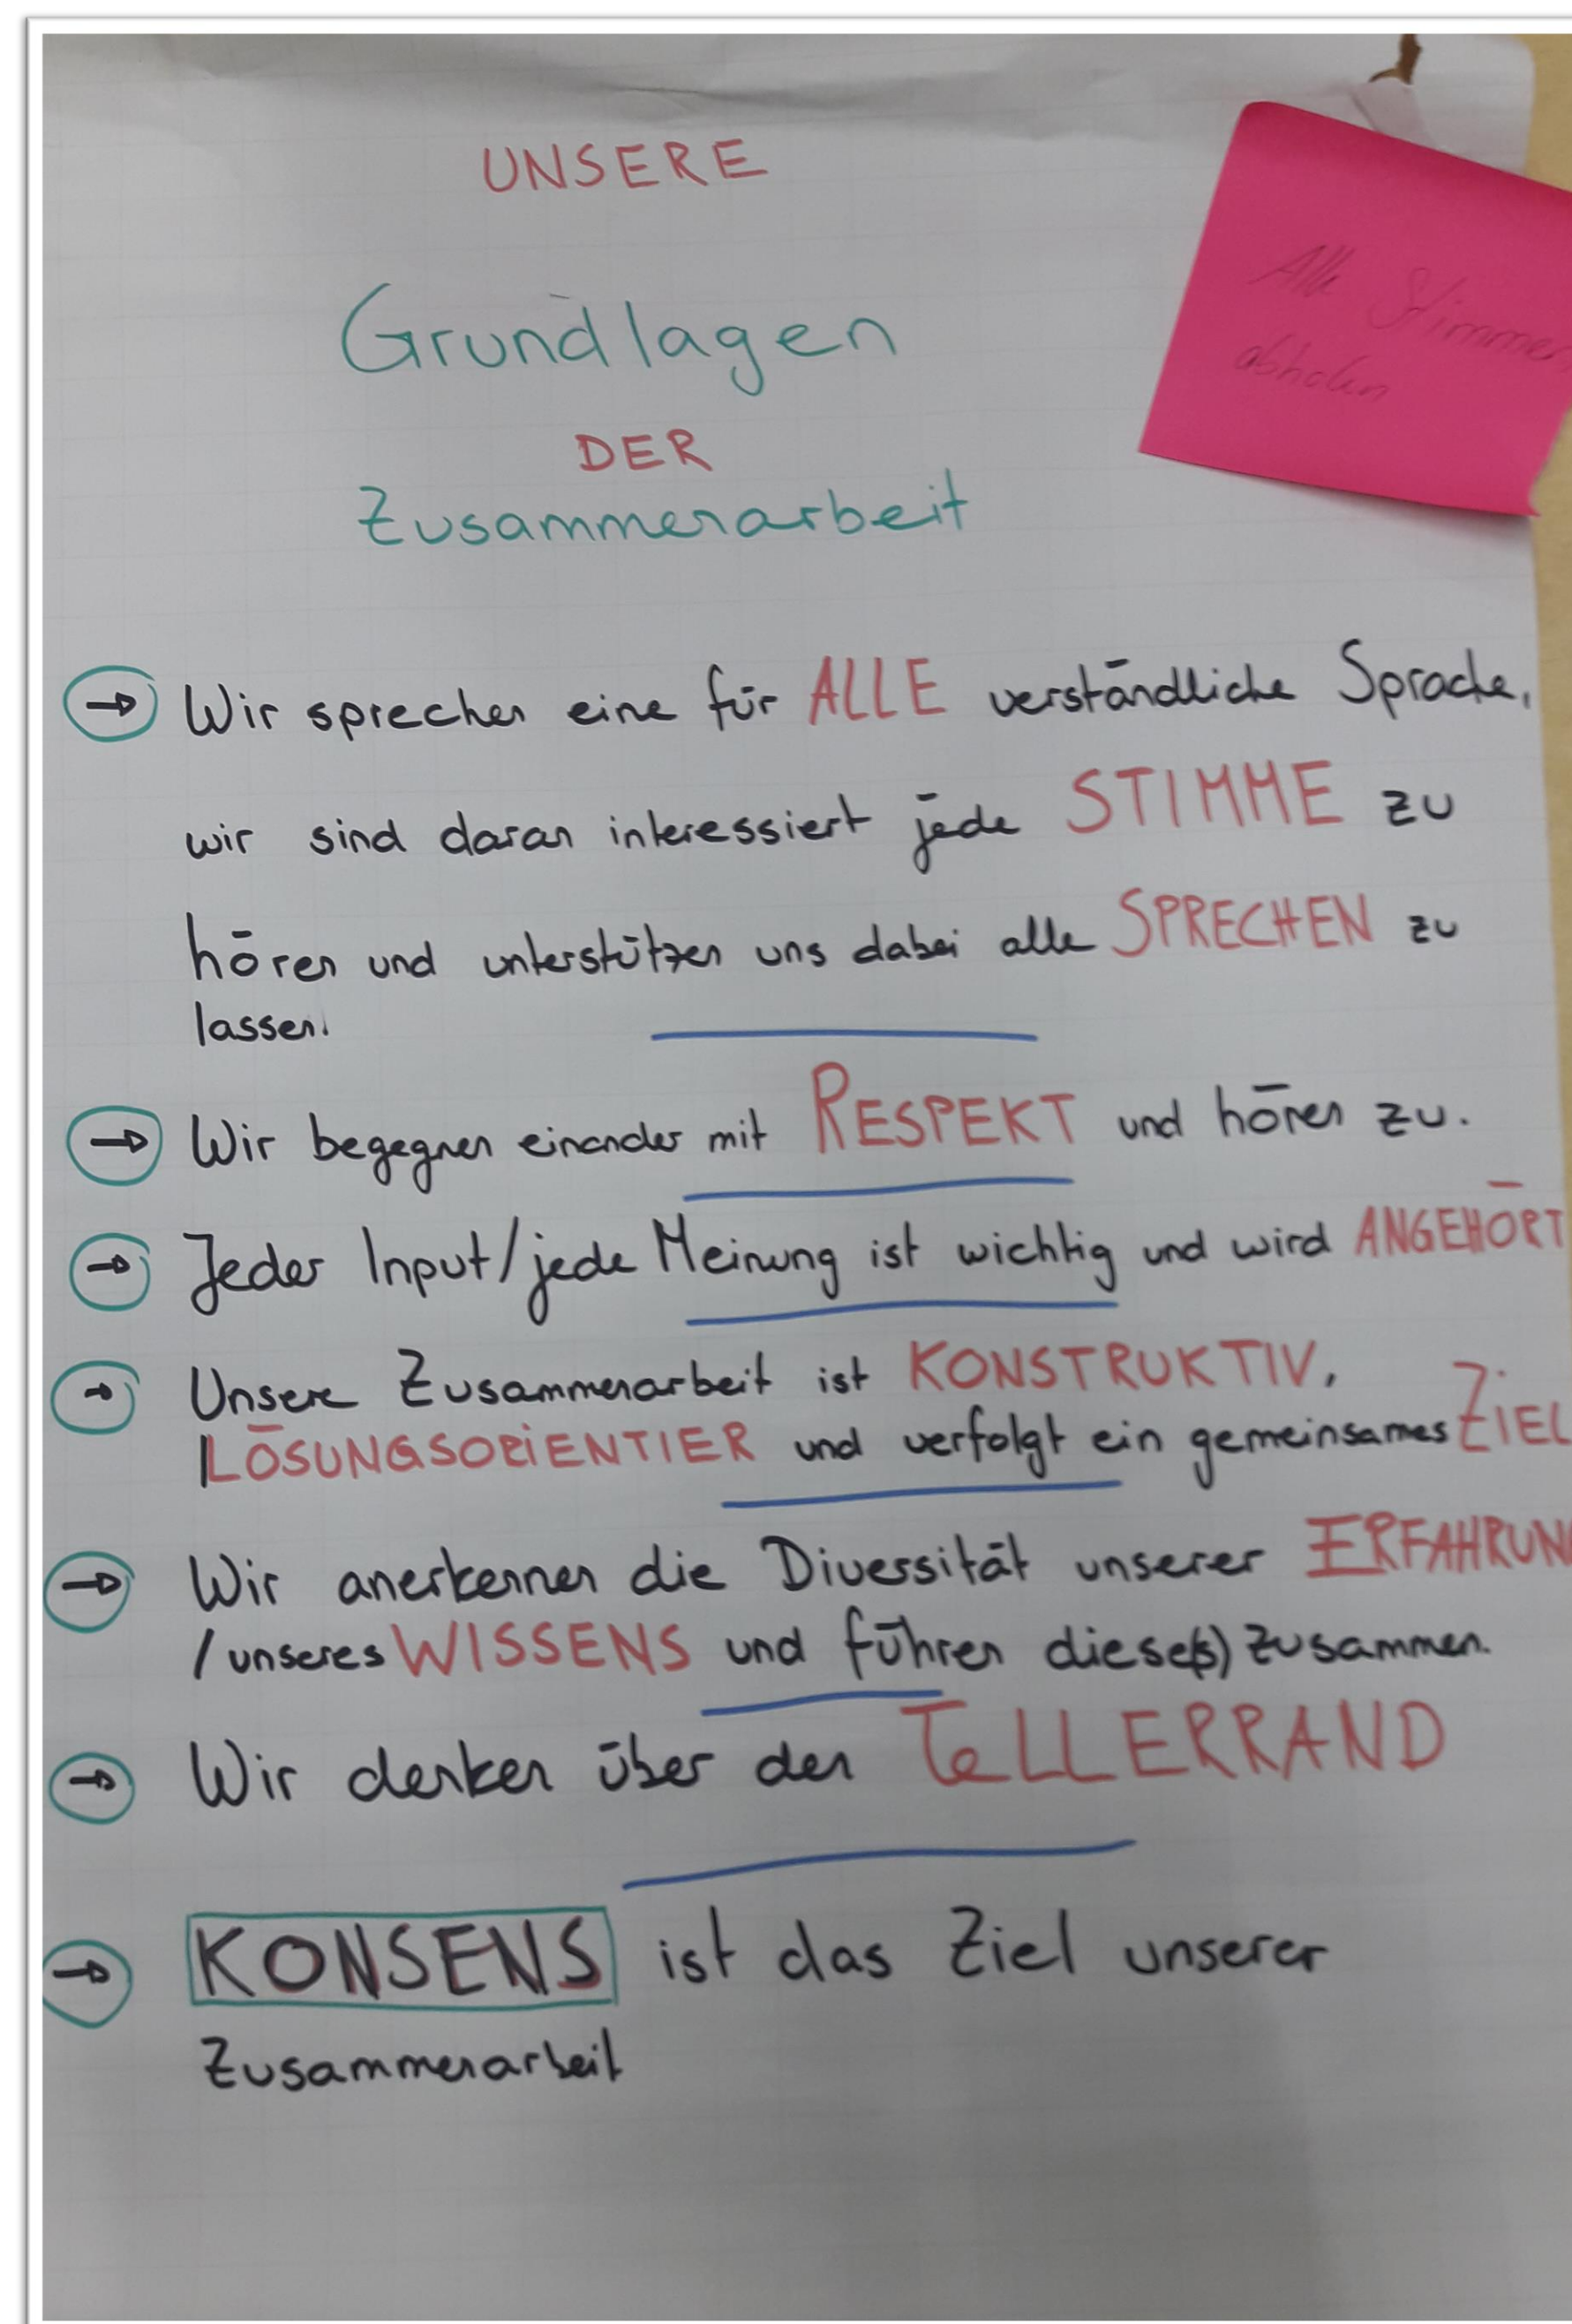 UNSERE
Grundlagen
DER
Zusammenarbeit
Alle Stimmen
abholen
→ Wir sprechen eine für ALLE verständliche Sprache,
wir sind daran interessiert jede STIMME zu
hören und unterstützen uns dabei alle SPRECHEN zu
lassen.
→ Wir begegnen einander mit RESPEKT und hören zu.
→ Jeder Input/jede Meinung ist wichtig und wird ANGEHÖRT
→ Unsere Zusammenarbeit ist KONSTRUKTIV,
LÖSUNGSORIENTIER und verfolgt ein gemeinsames ZIEL
→ Wir anerkennen die Diversität unserer ERFAHRUN
/ unseres WISSENS und führen diese(s) zusammen.
→ Wir denken über den TELLERRAND
→ KONSENS ist das Ziel unserer
Zusammenarbeit